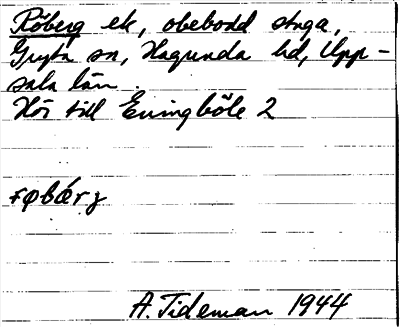 Röberg ek, obebodd stuga,
Gryta sn, Hagunda hd, Upp-
sala län.
Hör till Evingböle 2
A. Tideman 1944